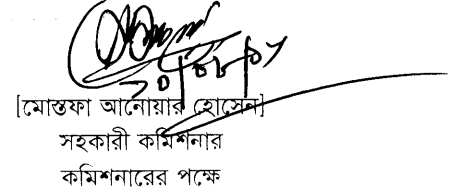 [মোস্তফা আনোয়ার হোসেন]
সহকারী কমিশনার
কমিশনারের পক্ষে